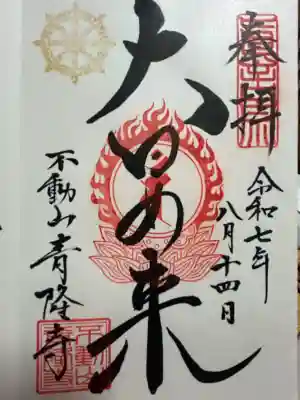 奉拝
令和七年
八月十四日
大日如来
不動山青隆寺